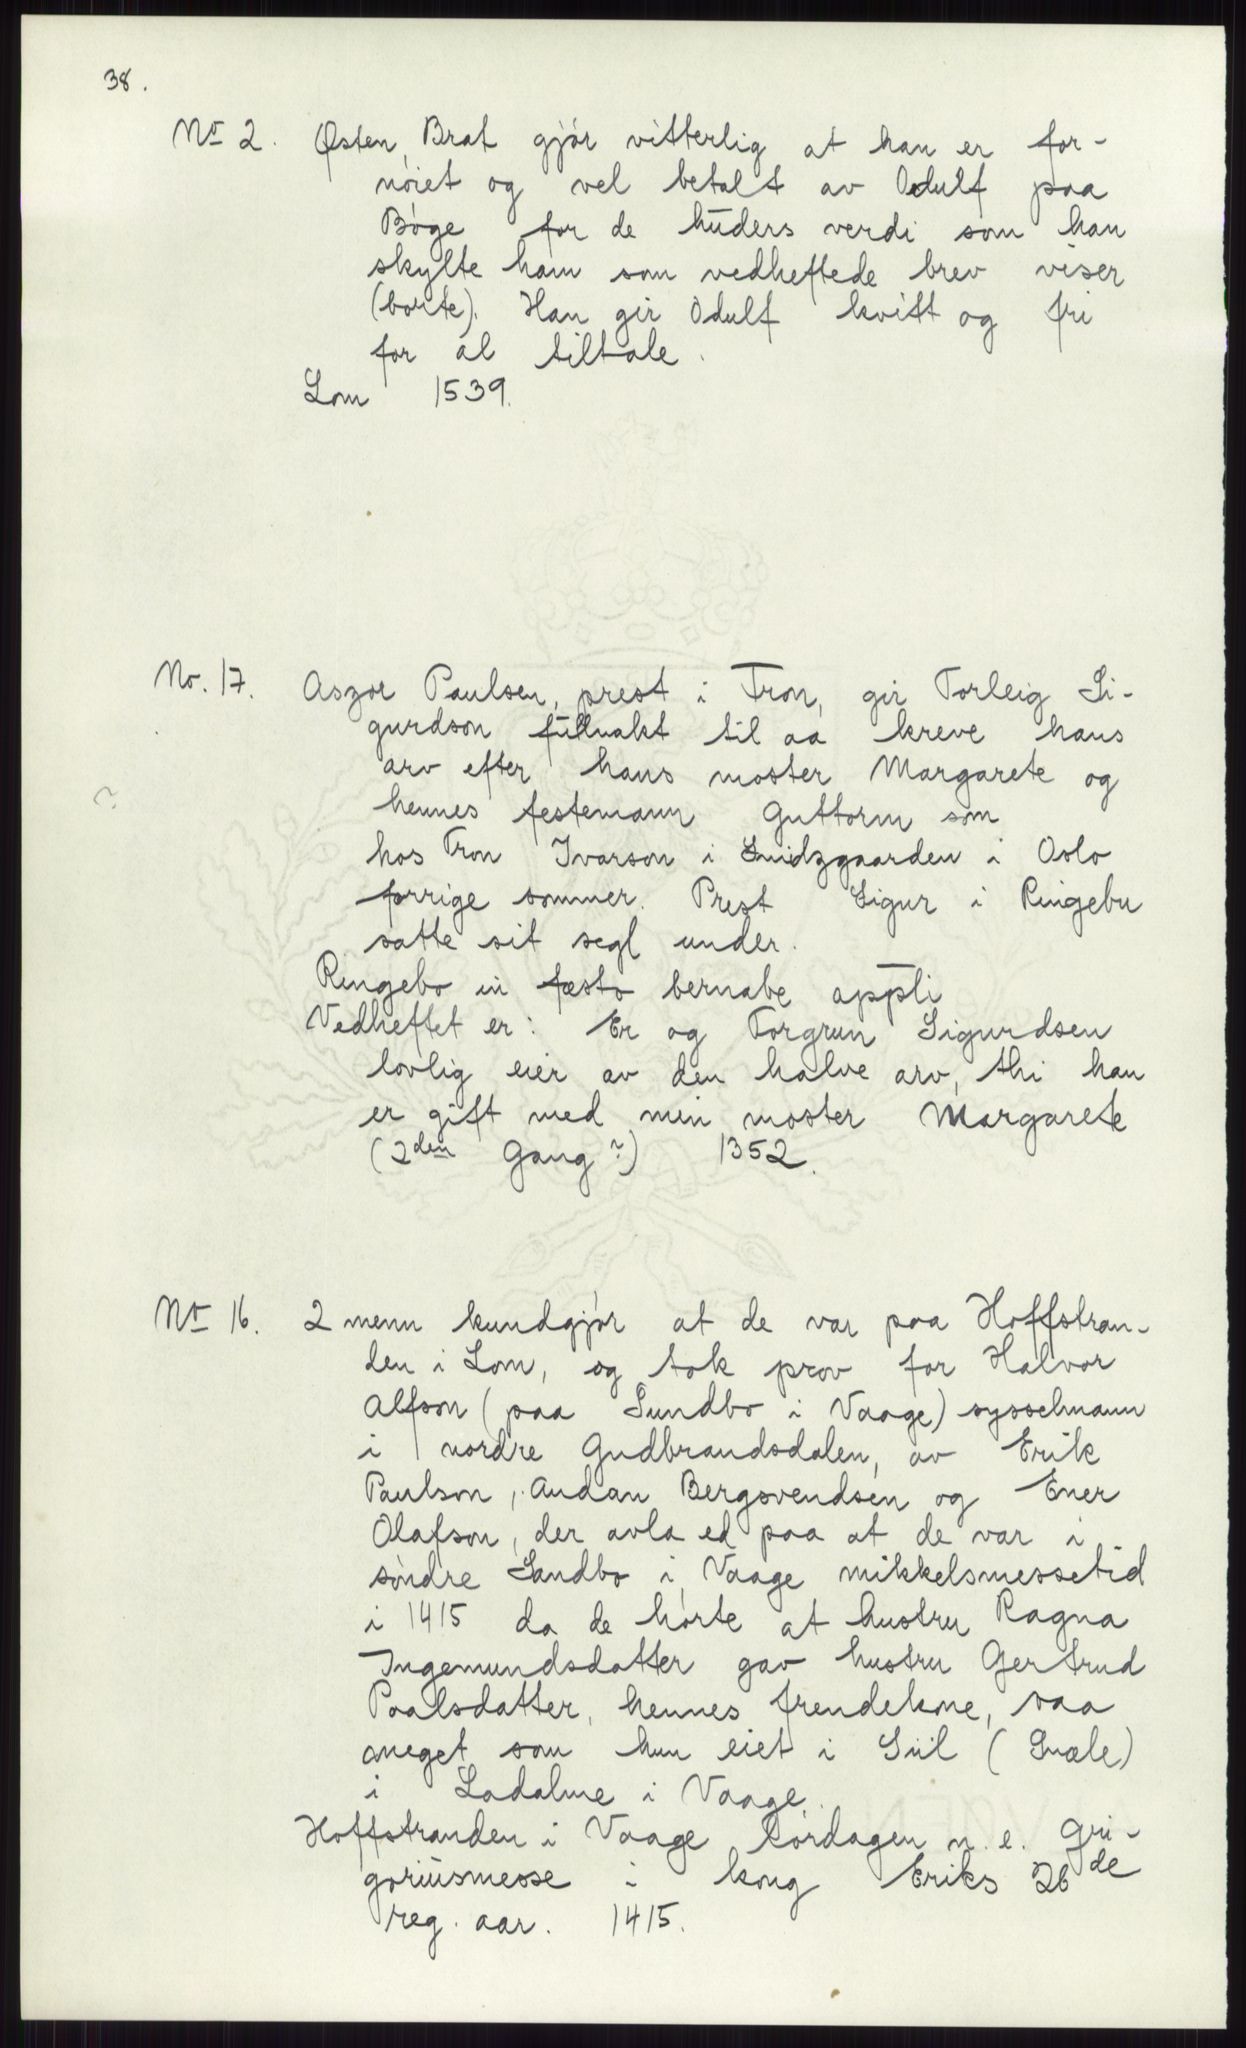 38.
No 2. Østen Brat gjør vitterlig at han er for-
nøiet og vel betalt av Odulf paa
Bøge for de huders verdi som han
skylte ham som vedheftede brev viser
(borte). Han gir Odulf kvitt og fri
for al tiltale.
Lom 1539.
No. 17. Aszor Paulsen, prest i Fron, gir Torleig Si-
gurdson fullmakt til aa kreve hans
arv efter hans moster Margarete og
?
hennes festemann Guttorm som
hos Tron Ivarson i Smidzgaarden i Oslo
forrige sommer. Prest Sigur i Ringebu
satte sit segl under.
Ringebo in festo bernabe appli
Vedheftet er: Er og Torgrun Sigurdsen
lovlig eier av den halve arv, thi han
er gift med min moster Margarete
(2den Gang?) 1352.
No 16. 2 menn kundgjør at de var paa Hoffstran-
den i Lom, og tok prov for Halvor
Alfson (paa Sundbo i Vaage) sysselmann
i nordre Gudbrandsdalen, av Erik
Paulson, Audan Bergsvendsen og Ener
Olafson, der avla ed paa at de var i
søndre Sandbo i Vaage mikkelsmessetid
i 1415 da de hørte at hustru Ragna
Ingemundsdatter gav hustru Gertrud
Paalsdatter, hennes frendekone, saa
meget som hun eiet i Siil (Snæle)
i Ladalme i Vaage.
Hoffstranden i Vaage Lørdagen n. e. Gri-
goriusmesse i kong Eriks 26de
reg. aar. 1415.